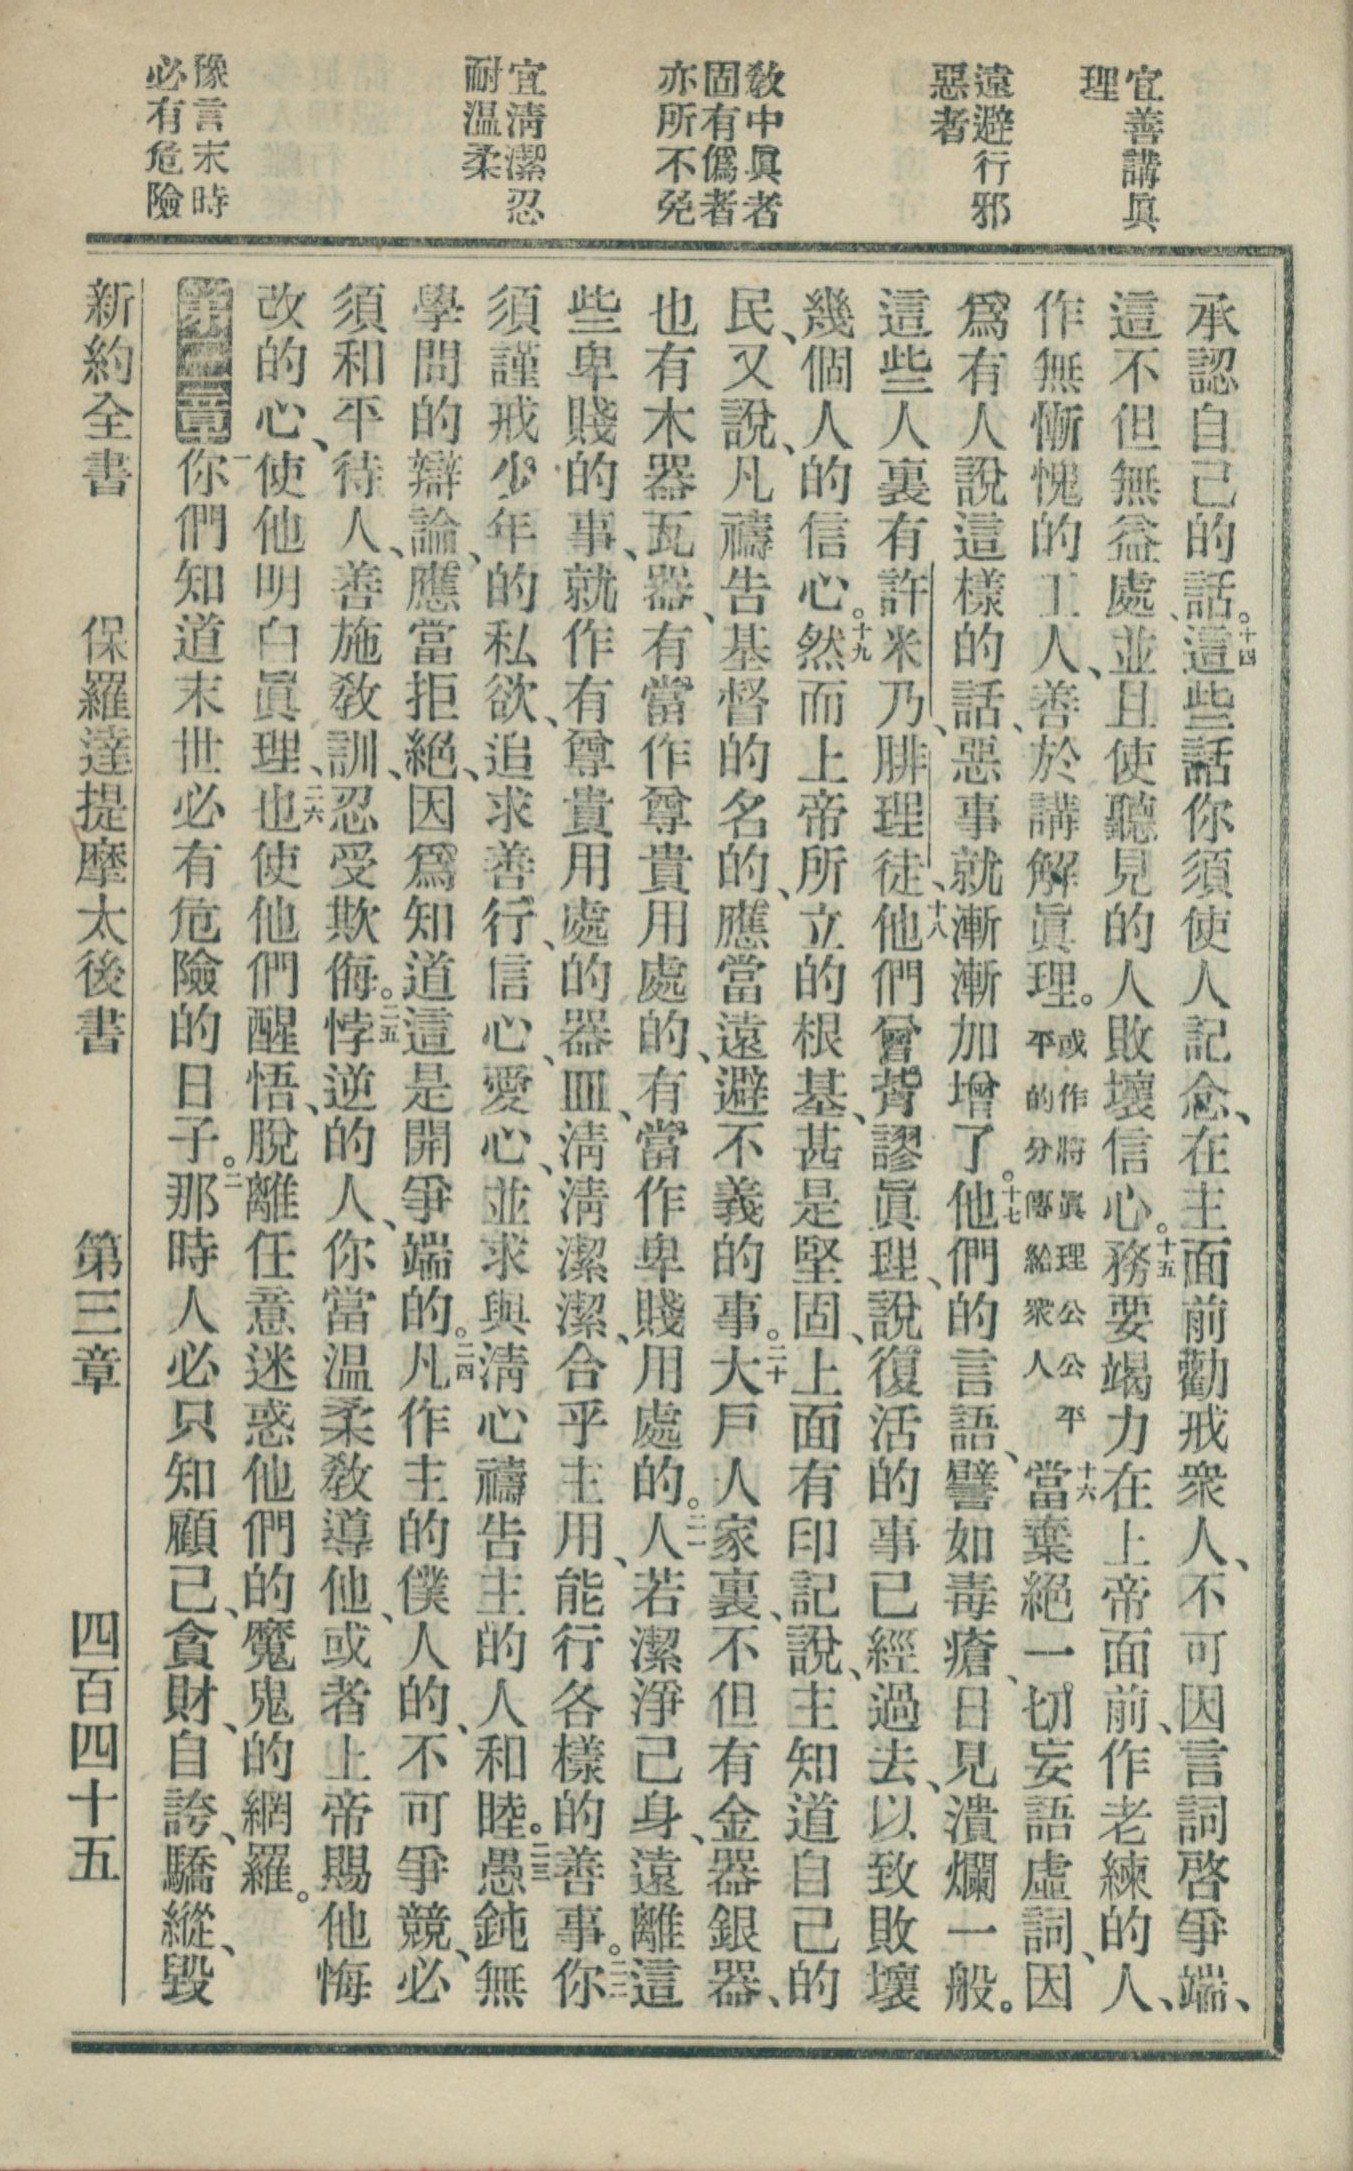 宜善講眞
理
遠避行邪
惡者
敎中眞者
固有僞者
亦所不免
宜淸潔忍
耐温柔
豫言末時
必有危險
承認自己的話。十四這些話你須使人記念、在主面前勸戒衆人、不可因言詞啓爭端、
這不但無益處、並且使聽見的人敗壞信心。十五務要竭力在上帝面前、作老練的人、
作無慚愧的工人、善於講解眞理。或作將眞理公公平平的分傳給衆人十六當棄絕一切妄語虛詞、因
爲有人說這樣的話、惡事就漸漸加增了。十七他們的言語、譬如毒瘡、日見潰爛一般。
這些人裏有許米乃、腓理徒、十八他們曾背謬眞理、說復活的事已經過去、以致敗壞
幾個人的信心。十九然而上帝所立的根基、甚是堅固、上面有印記說、主知道自己的
民、又說、凡禱告基督的名的、應當遠避不義的事。二十大戶人家裏、不但有金器銀器、
也有木器瓦器、有當作尊貴用處的、有當作卑賤用處的。二一人若潔淨己身、遠離這
些卑賤的事、就作有尊貴用處的器皿、淸淸潔潔、合乎主用、能行各樣的善事。二二你
須謹戒少年的私欲、追求善行、信心、愛心、並求與淸心禱告主的人和睦。二三愚鈍無
學問的辯論、應當拒絕、因爲知道這是開爭端的。二四凡作主的僕人的、不可爭競、必
須和平待人、善施敎訓、忍受欺侮。二五悖逆的人、你當温柔敎導他、或者上帝賜他悔
改的心、使他明白眞理、二六也使他們醒悟、脫離任意迷惑他們的魔鬼的網羅。
第三章一你們知道末世必有危險的日子。二那時人必只知顧己、貪財、自誇、驕縱、毀
新約全書 保羅達提摩太後書 第三章 四百四十五